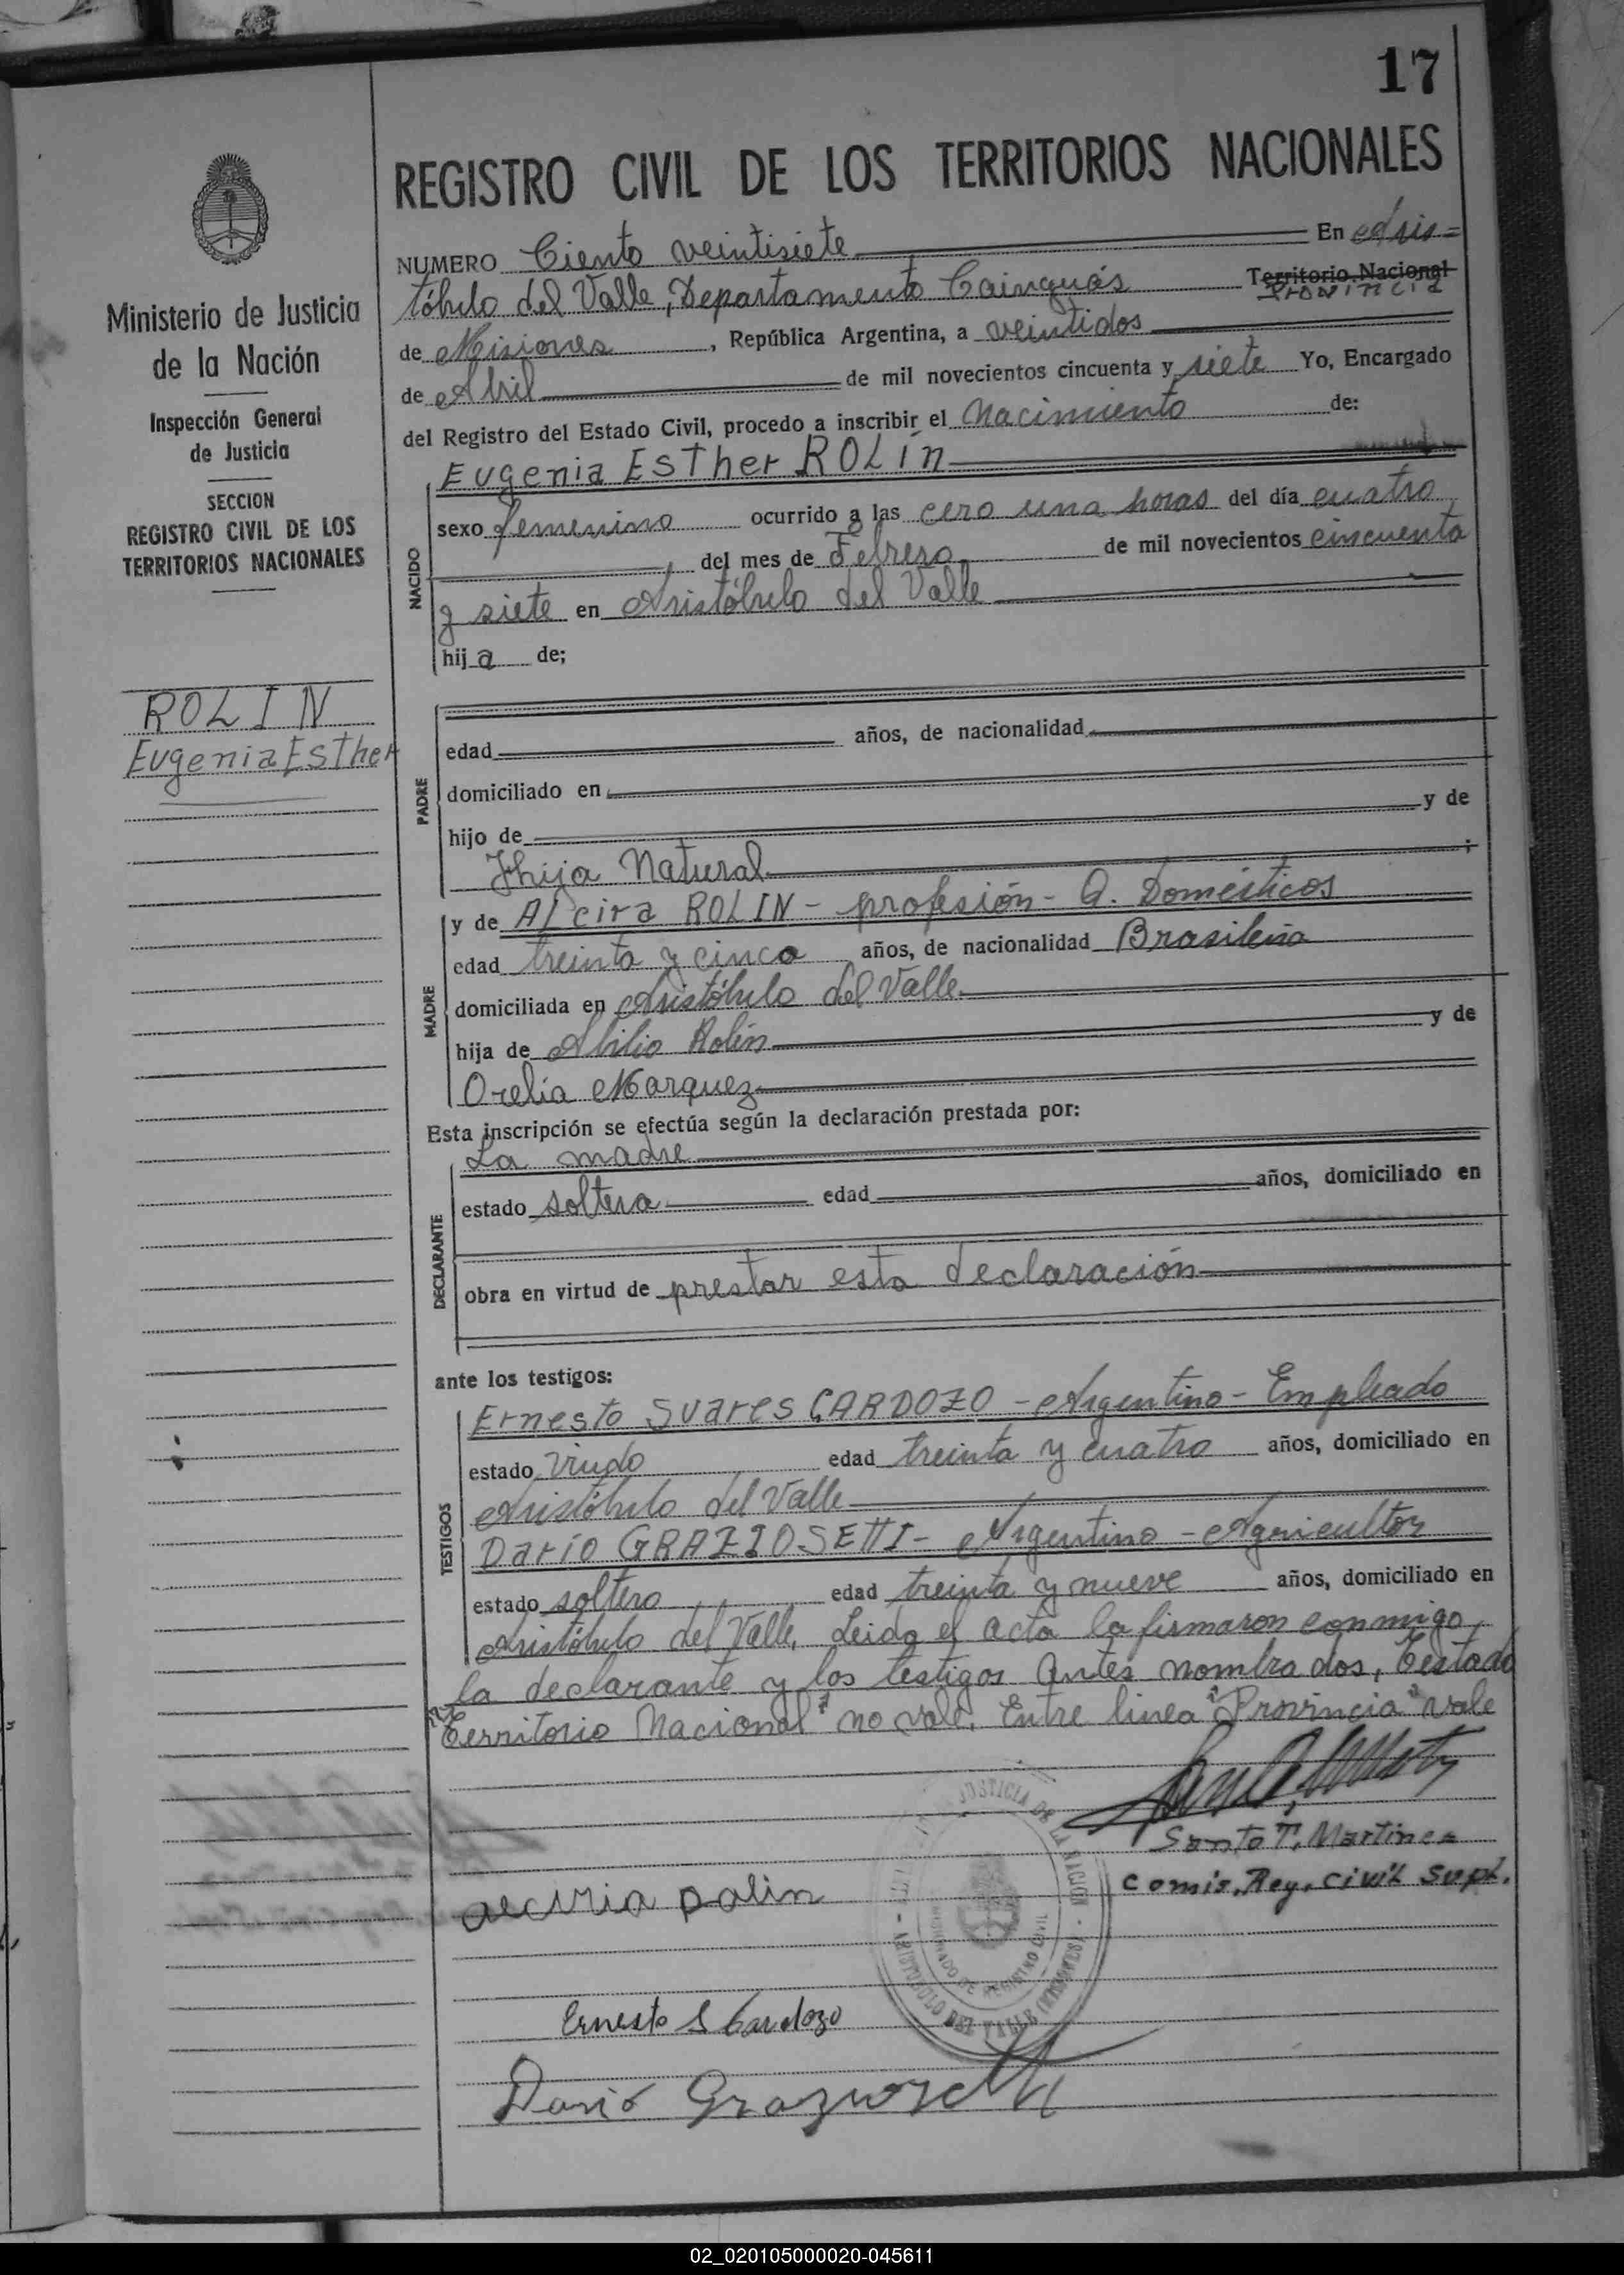 17
REGISTRO CIVIL DE LOS TERRITORIOS NACIONALES
Ministerio de Justicia
de la Nación
Inspección General
de Justicia
SECCION
REGISTRO CIVIL DE LOS
TERRITORIOS NACIONALES
ROLIN
Eugenia Esther
NUMERO Ciento veintisiete En Aris=
tóbulo del Valle, Departamento Cainguás Territorio Nacional
Provincia
de Misiones, República Argentina, a veintidos
de Abril de mil novecientos cincuenta y siete Yo, Encargado
del Registro del Estado Civil, procedo a inscribir el Nacimiento de:
NACIDO
Eugenia Esther ROLIN
sexo femenino ocurrido a las cero una horas del día cuatro
, del mes de Febrero de mil novecientos cincuenta
y siete en Aristóbulo del Valle
hija de;
PADRE
edad años, de nacionalidad
domiciliado en
hijo de y de
Hija Natural ;
MADRE
y de Alcira ROLIN - profesión - Q. Domésticos
edad treinta y cinco años, de nacionalidad Brasileña
domiciliada en Aristóbulo del Valle
hija de Abilio Rolín y de
Orelia Marquez
Esta inscripción se efectúa según la declaración prestada por:
DECLARANTE
La madre
estado soltera edad años, domiciliado en
obra en virtud de prestar esta declaración
ante los testigos:
TESTIGOS
Ernesto Suares CARDOZO - Argentino - Empleado
estado viudo edad treinta y cuatro años, domiciliado en
Aristóbulo del Valle
Darío GRAZIOSETTI - Argentino - Agricultor
estado soltero edad treinta y nueve años, domiciliado en
Aristóbulo del Valle, Leida el acta la firmaron conmigo,
la declarante y los testigos antes nombrados, Testado
"Territorio Nacional" no vale. Entre linea "Provincia" vale
Santo T. Martinez
Comis. Reg. Civil Supl.
alciria Rolin
JUSTICIA DE LA NACION
ARISTOBULO DEL VALLE (MISIONES)
DE REGISTRO CIVIL
Ernesto S Cardozo
Darió Graziosetti
02_020105000020-045611